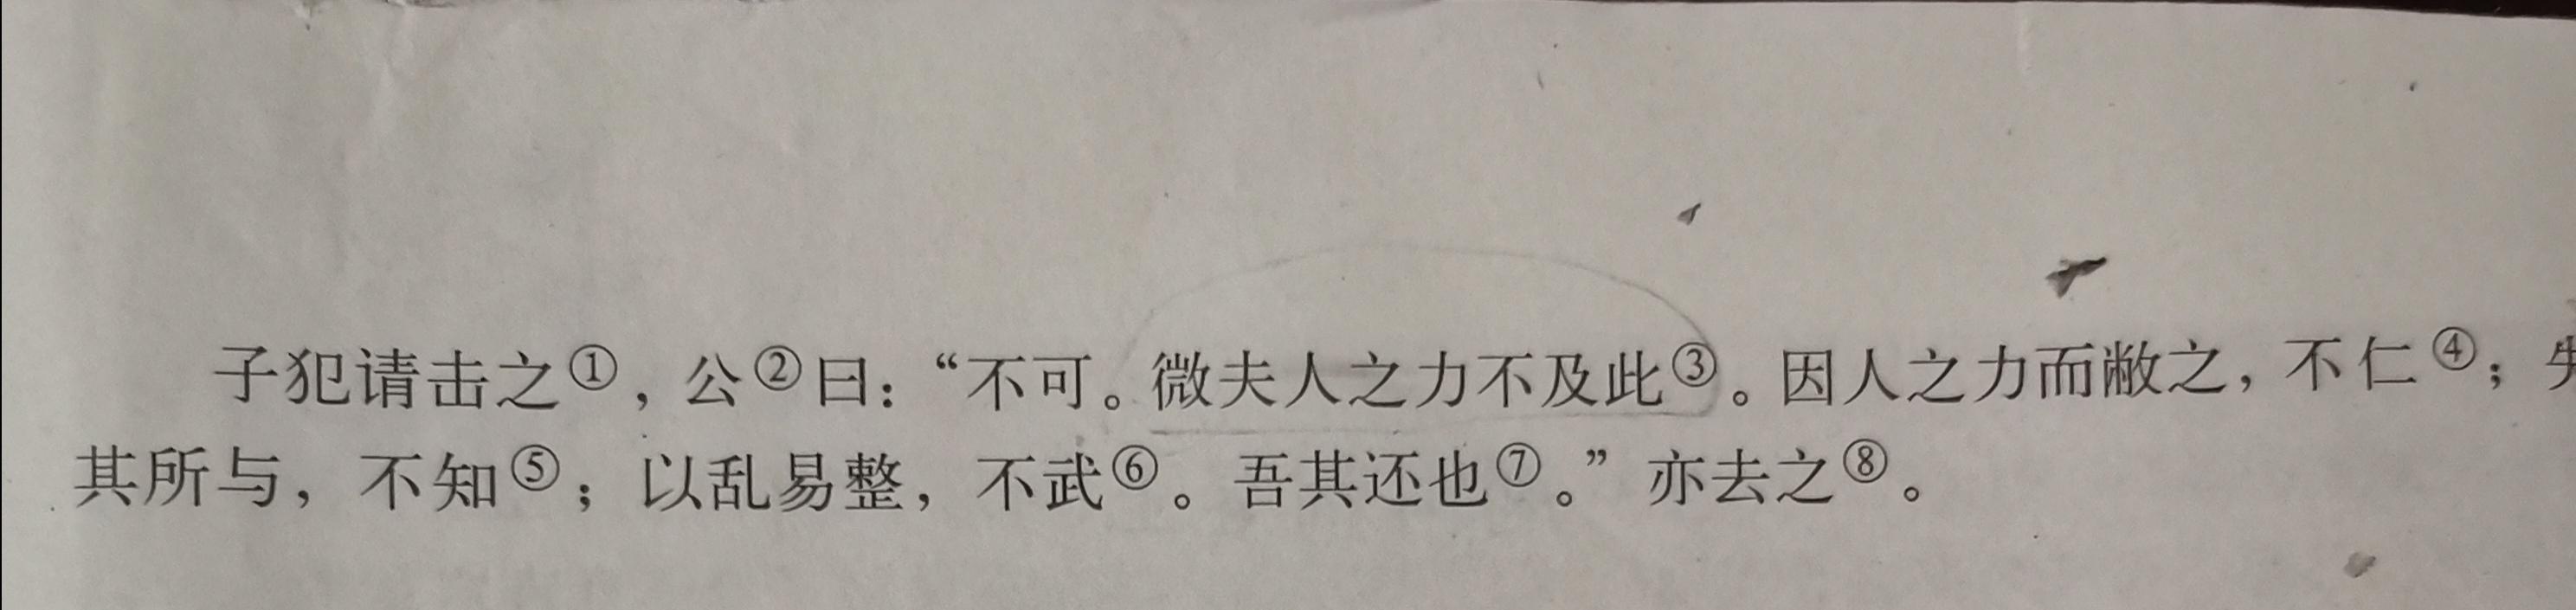 子犯请击之①，公②曰：“不可。微夫人之力不及此③。因人之力而敝之，不仁④；失
其所与，不知⑤；以乱易整，不武⑥。吾其还也⑦。”亦去之⑧。